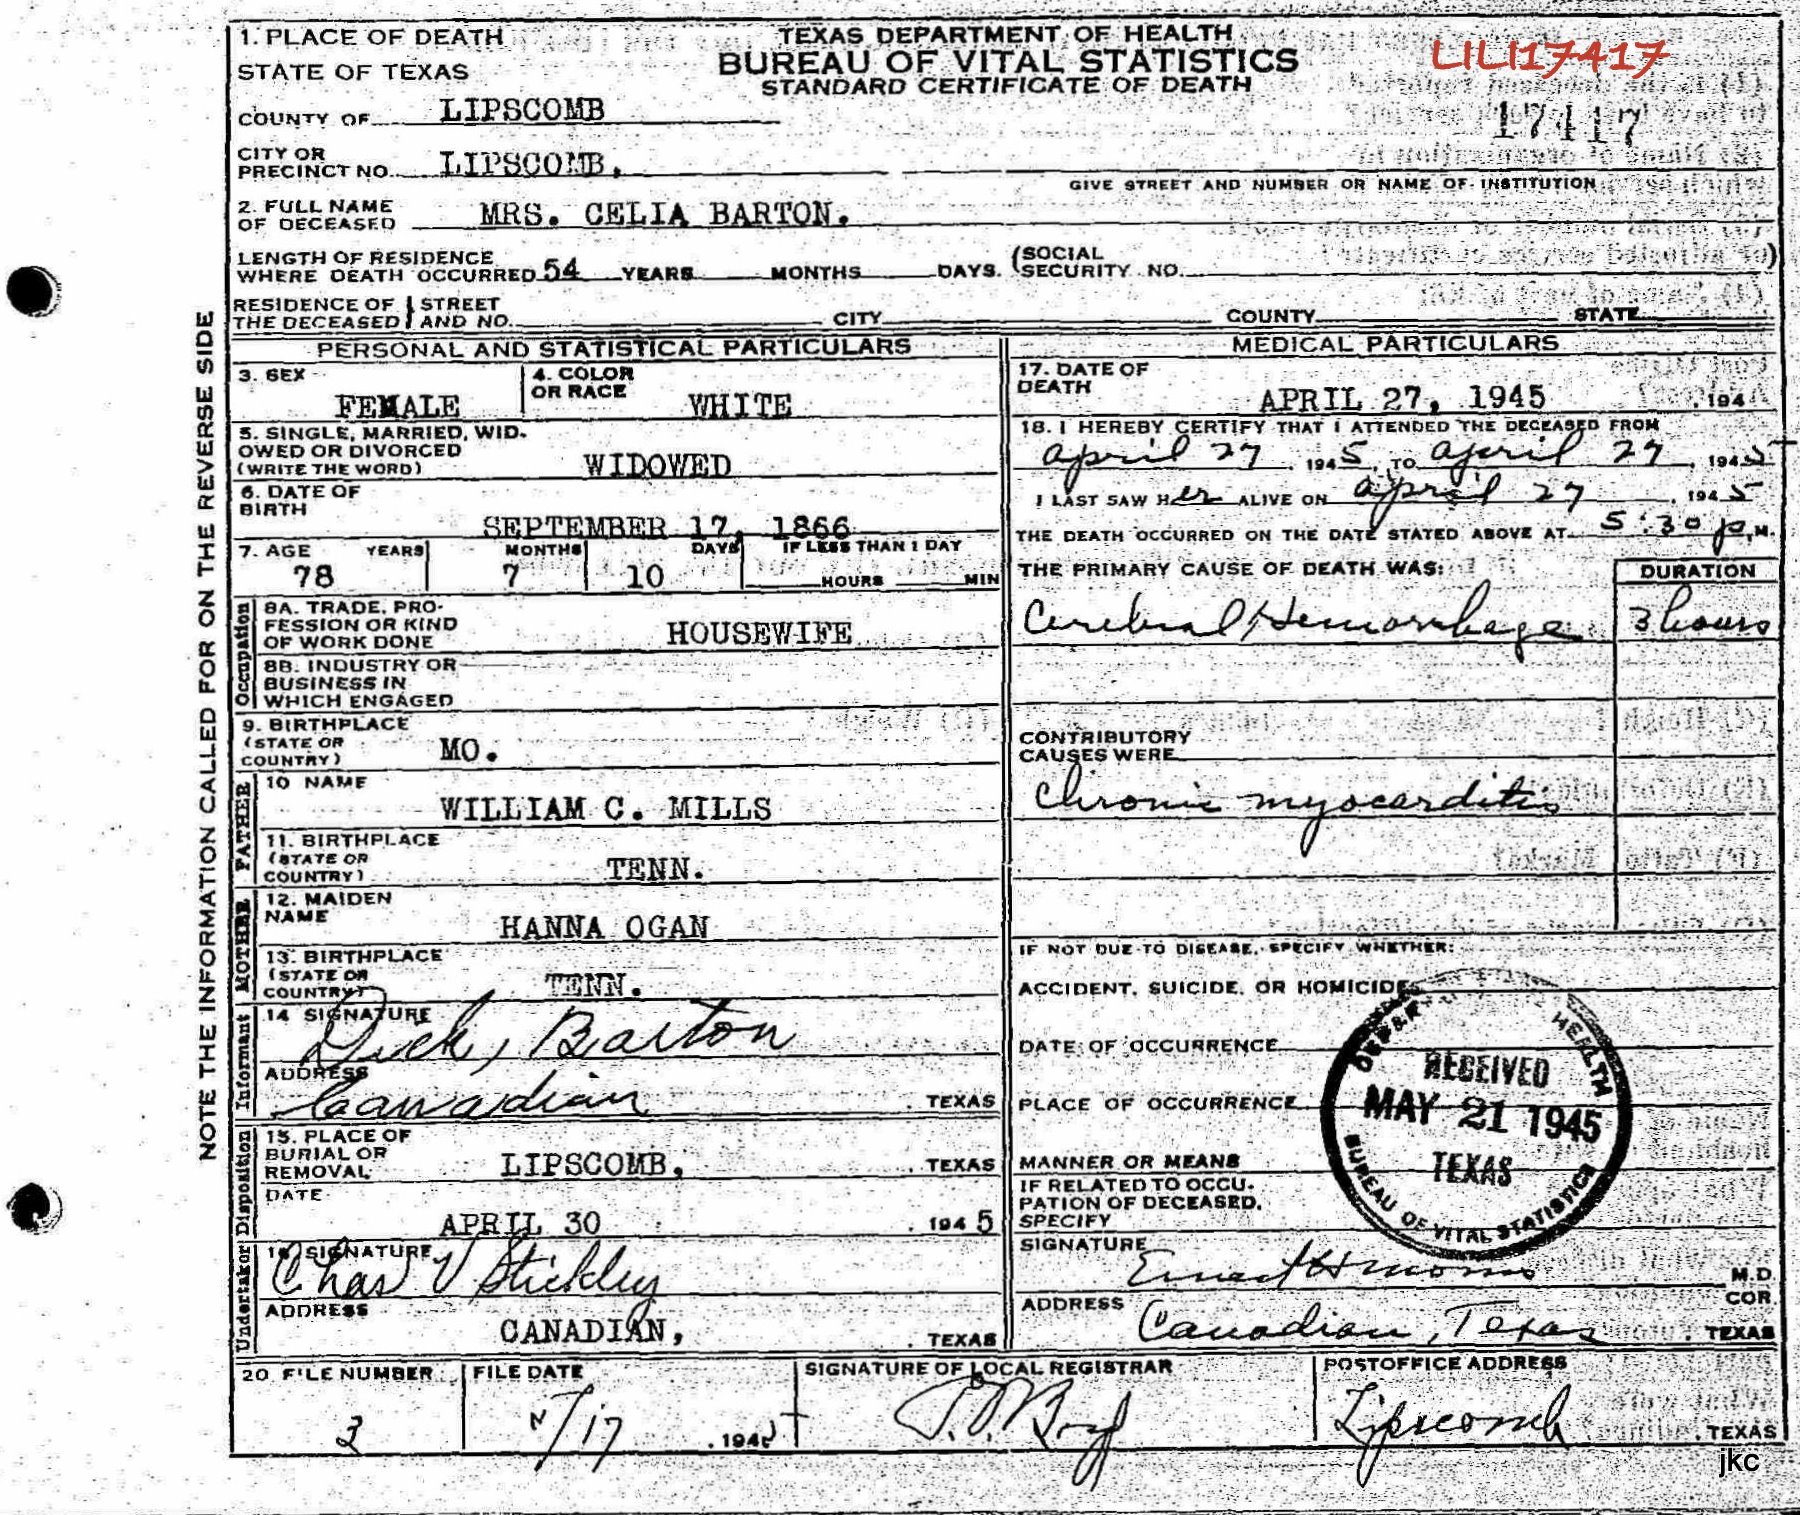 LILI17417
TEXAS DEPARTMENT OF HEALTH
BUREAU OF VITAL STATISTICS
STANDARD CERTIFICATE OF DEATH
17417
1. PLACE OF DEATH
STATE OF TEXAS
COUNTY OF LIPSCOMB
CITY OR
PRECINCT NO. LIPSCOMB,
GIVE STREET AND NUMBER OR NAME OF INSTITUTION
2. FULL NAME
OF DECEASED MRS. CELIA BARTON.
LENGTH OF RESIDENCE
WHERE DEATH OCCURRED 54 YEARS MONTHS DAYS. (SOCIAL
SECURITY NO. )
RESIDENCE OF THE DECEASED } STREET AND NO. CITY COUNTY STATE
NOTE THE INFORMATION CALLED FOR ON THE REVERSE SIDE
PERSONAL AND STATISTICAL PARTICULARS
3. SEX
FEMALE
4. COLOR
OR RACE WHITE
5. SINGLE, MARRIED, WID-
OWED OR DIVORCED
(WRITE THE WORD) WIDOWED
6. DATE OF
BIRTH
SEPTEMBER 17, 1866
7. AGE YEARS MONTHS DAYS IF LESS THAN 1 DAY
78 7 10 HOURS MIN
Occupation
8A. TRADE, PRO-
FESSION OR KIND
OF WORK DONE HOUSEWIFE
8B. INDUSTRY OR
BUSINESS IN
WHICH ENGAGED
9. BIRTHPLACE
(STATE OR
COUNTRY) MO.
FATHER
10 NAME
WILLIAM C. MILLS
11. BIRTHPLACE
(STATE OR
COUNTRY) TENN.
MOTHER
12. MAIDEN
NAME HANNA OGAN
13. BIRTHPLACE
(STATE OR
COUNTRY) TENN.
Informant
14 SIGNATURE
Dick, Barton
ADDRESS
Canadian . TEXAS
Disposition
15. PLACE OF
BURIAL OR
REMOVAL LIPSCOMB, . TEXAS
DATE
APRIL 30 . 1945
Undertaker
16 SIGNATURE
Chas V Stickley
ADDRESS
CANADIAN, . TEXAS
MEDICAL PARTICULARS
17. DATE OF
DEATH APRIL 27, 1945 . 194
18. I HEREBY CERTIFY THAT I ATTENDED THE DECEASED FROM
april 27 . 1945, TO april 27 . 1945
I LAST SAW Her ALIVE ON april 27 . 1945
THE DEATH OCCURRED ON THE DATE STATED ABOVE AT 5:30 p.M.
THE PRIMARY CAUSE OF DEATH WAS: DURATION
Cerebral Hemorrhage 3 hours
CONTRIBUTORY
CAUSES WERE
Chronic myocarditis
IF NOT DUE TO DISEASE, SPECIFY WHETHER:
ACCIDENT, SUICIDE, OR HOMICIDE
DATE OF OCCURRENCE
PLACE OF OCCURRENCE
MANNER OR MEANS
IF RELATED TO OCCU-
PATION OF DECEASED,
SPECIFY
HEALTH
RECEIVED
MAY 21 1945
TEXAS
BUREAU OF VITAL STATISTICS
SIGNATURE
M.D.
COR.
ADDRESS Canadian, Texas . TEXAS
20 FILE NUMBER
3
FILE DATE
/17 . 1945
SIGNATURE OF LOCAL REGISTRAR
POSTOFFICE ADDRESS
Lipscomb . TEXAS
jkc